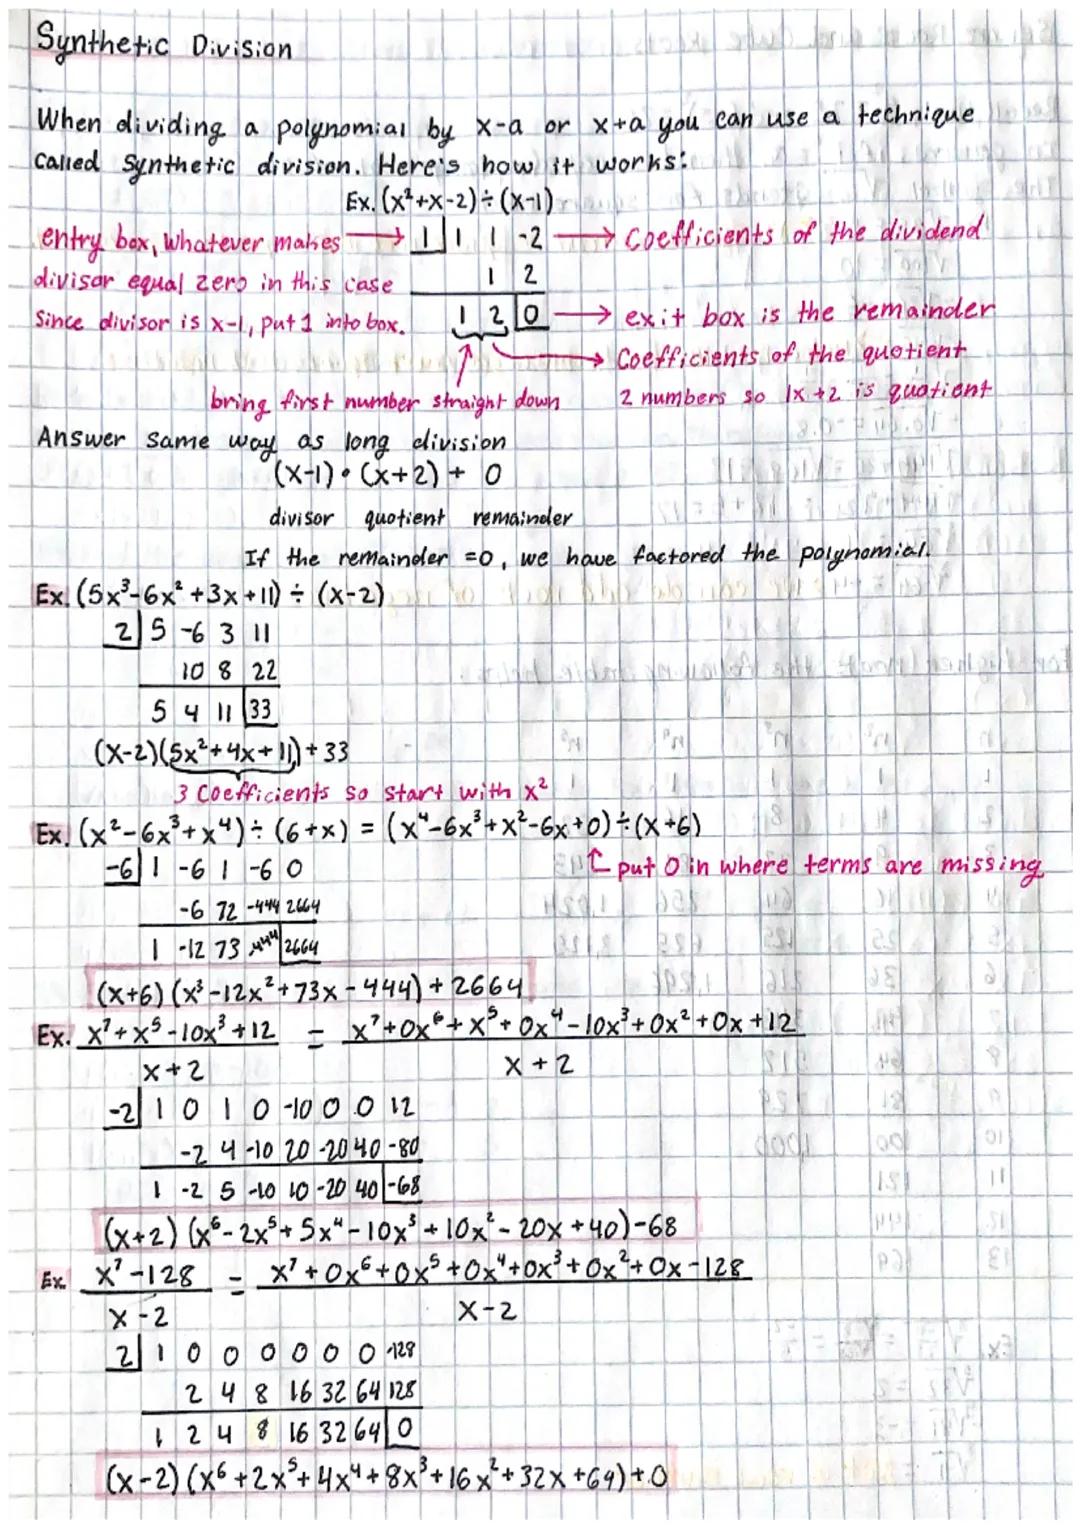 Synthetic Division
When dividing a polynomial by x-a or x+a you can use a technique
called synthetic division. Here's how it works:
Ex. (x²+x-2)÷(x-1)
entry box, whatever makes → 1| 1 1 -2 → Coefficients of the dividend
divisor equal zero in this case 1 2
since divisor is x-1, put 1 into box. 1 2 |0 → exit box is the remainder
→ Coefficients of the quotient
bring first number straight down 2 numbers so 1x+2 is quotient
Answer same way as long division
(x-1)·(x+2) + 0
divisor quotient remainder
If the remainder =0, we have factored the polynomial.
Ex. (5x³-6x²+3x+11) ÷ (x-2)
2| 5 -6 3 11
10 8 22
5 4 11 |33
(x-2)(5x²+4x+11)+33
3 coefficients so start with x²
Ex. (x²-6x³+x⁴)÷(6+x) = (x⁴-6x³+x²-6x+0)÷(x+6)
-6| 1 -6 1 -6 0
↑ put 0 in where terms are missing
-6 72 -444 2664
1 -12 73 -444 |2664
(x+6)(x³-12x²+73x-444)+2664
Ex. x⁷+x⁵-10x³+12 = x⁷+0x⁶+x⁵+0x⁴-10x³+0x²+0x+12
x+2 x+2
-2| 1 0 1 0 -10 0 0 12
-2 4 -10 20 -20 40 -80
1 -2 5 -10 10 -20 40 |-68
(x+2)(x⁶-2x⁵+5x⁴-10x³+10x²-20x+40)-68
Ex. x⁷-128 = x⁷+0x⁶+0x⁵+0x⁴+0x³+0x²+0x-128
x-2 x-2
2| 1 0 0 0 0 0 0 -128
2 4 8 16 32 64 128
1 2 4 8 16 32 64 |0
(x-2)(x⁶+2x⁵+4x⁴+8x³+16x²+32x+64)+0